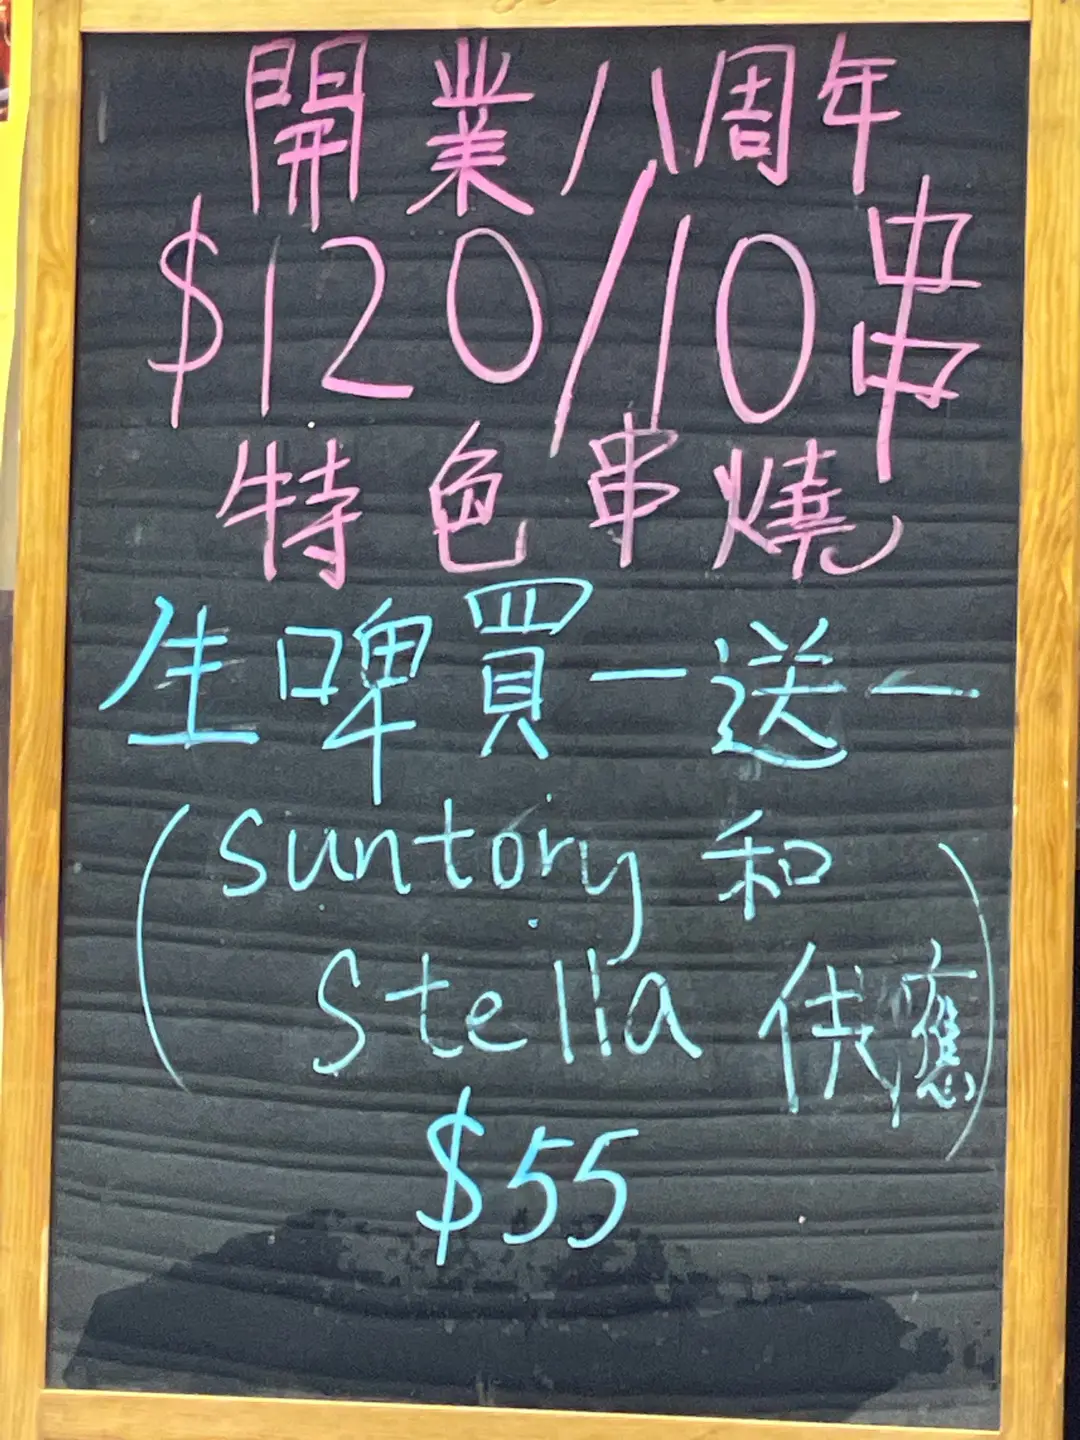 開業八周年
$120/10串
特色串燒
生啤買一送一
(suntory 和
stella 供應)
$55